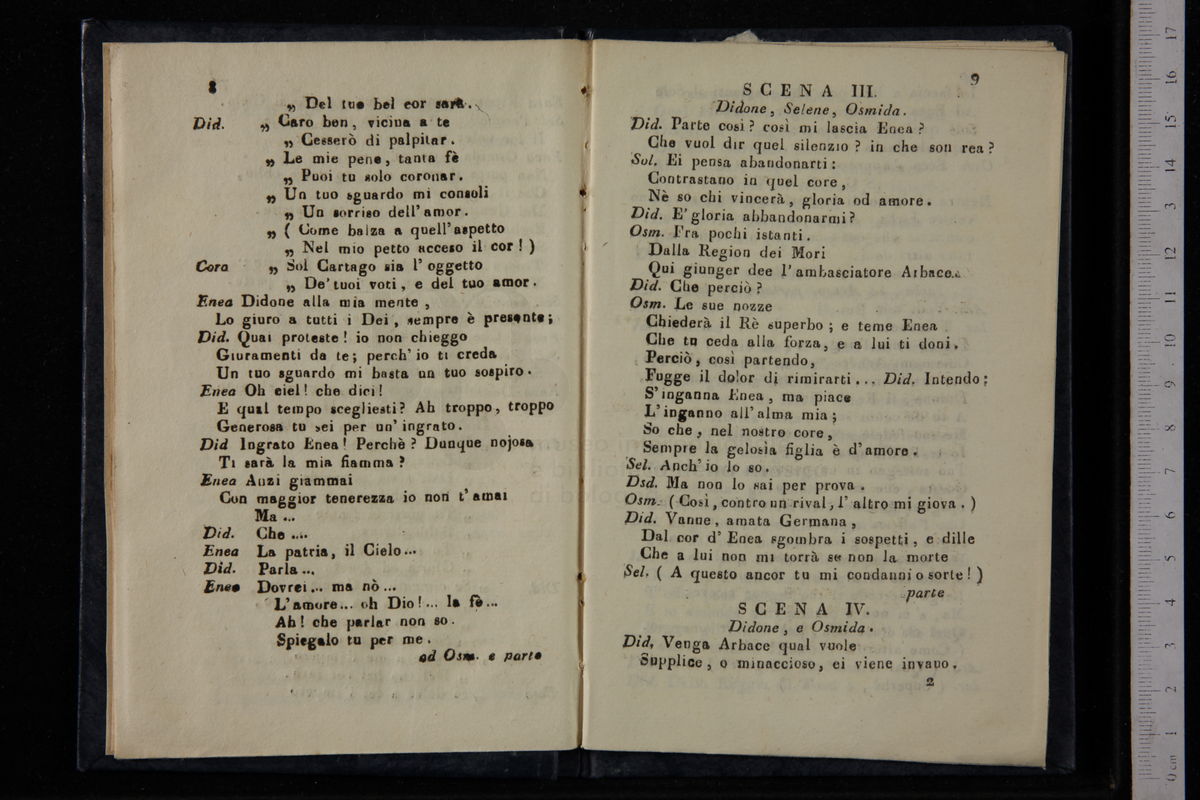 8
„ Del tuo bel cor sarà.
Did. „ Caro ben, vicina a te
„ Cesserò di palpitar.
„ Le mie pene, tanta fè
„ Puoi tu solo coronar.
„ Un tuo sguardo mi consoli
„ Un sorriso dell'amor.
„ ( Come balza a quell'aspetto
„ Nel mio petto acceso il cor! )
Coro „ Sol Cartago sia l'oggetto
„ De'tuoi voti, e del tuo amor.
Enea Didone alla mia mente,
Lo giuro a tutti i Dei, sempre è presente;
Did. Quai proteste! io non chieggo
Giuramenti da te; perch'io ti creda
Un tuo sguardo mi basta un tuo sospiro.
Enea Oh ciel! che dici!
E qual tempo scegliesti? Ah troppo, troppo
Generosa tu sei per un'ingrato.
Did Ingrato Enea! Perchè? Dunque nojosa
Ti sarà la mia fiamma?
Enea Anzi giammai
Con maggior tenerezza io non t'amai
Ma ...
Did. Che ....
Enea La patria, il Cielo...
Did. Parla...
Enea Dovrei... ma nò...
L'amore... oh Dio!... la fè...
Ah! che parlar non so.
Spiegalo tu per me.
ad Osm. e parte
9
SCENA III.
Didone, Selene, Osmida.
Did. Parte così? così mi lascia Enea?
Che vuol dir quel silenzio? in che son rea?
Sel. Ei pensa abandonarti:
Contrastano in quel core,
Nè so chi vincerà, gloria od amore.
Did. E'gloria abbandonarmi?
Osm. Fra pochi istanti.
Dalla Region dei Mori
Qui giunger dee l'ambasciatore Arbace.
Did. Che perciò?
Osm. Le sue nozze
Chiederà il Rè superbo; e teme Enea
Che tu ceda alla forza, e a lui ti doni.
Perciò, così partendo,
Fugge il dolor di rimirarti... Did. Intendo;
S'inganna Enea, ma piace
L'inganno all'alma mia;
So che, nel nostro core,
Sempre la gelosia figlia è d'amore.
Sel. Anch'io lo so.
Dsd. Ma non lo sai per prova.
Osm. ( Così, contro un rival, l'altro mi giova. )
Did. Vanne, amata Germana,
Dal cor d'Enea sgombra i sospetti, e dille
Che a lui non mi torrà se non la morte
Sel. ( A questo ancor tu mi condanni o sorte! )
parte
SCENA IV.
Didone, e Osmida.
Did. Venga Arbace qual vuole
Supplice, o minaccioso, ei viene invano.
2
0 cm 1 2 3 4 5 6 7 8 9 10 11 12 13 14 15 16 17